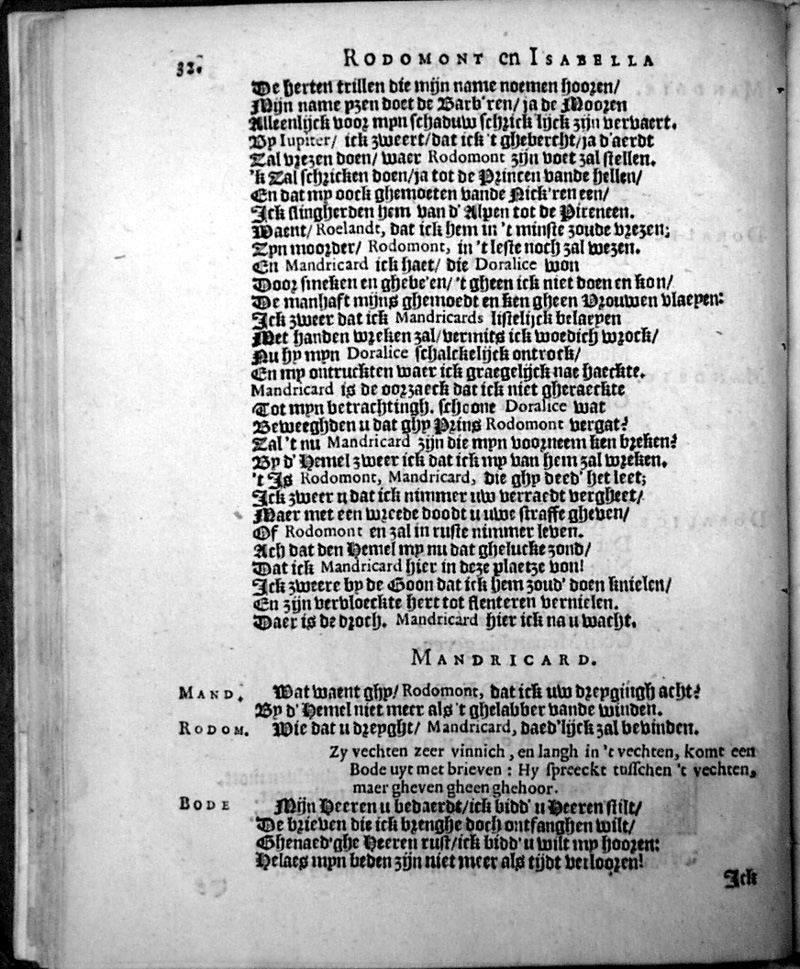 32.
RODOMONT en ISABELLA
De herten trillen die mijn name noemen hooren/
Mijn name yzen doet de Barb'ren/ ja de Mooren
Alleenlijck voor myn schaduw schrick'lijck zijn vervaert.
By Iupiter/ ick zweert/dat ick 't ghebercht/ja d'aerdt
Zal vrezen doen/ waer Rodomont zijn voet zal stellen.
'k Zal schricken doen/ja tot de Princen vande hellen/
En dat my oock ghemoeten vande Nick'ren een/
Ick slingherden hem van d'Alpen tot de Pireneen.
Waent/ Roelandt, dat ick hem in 't minste zoude vrezen;
Zyn moorder/ Rodomont, in 't leste noch zal wezen.
En Mandricard ick haet/ die Doralice won
Door smeken en ghebe'en/ 't gheen ick niet doen en kon/
De manhaft mijns ghemoedt en ken gheen Vrouwen vlaeyen:
Ick zweer dat ick Mandricards listelijck belaeyen
Met handen wreken zal/vermits ick woedich wrock/
Nu hy myn Doralice schalckelijck ontrock/
En my ontruckten waer ick graegelijck nae haeckte.
Mandricard is de oorzaeck dat ick niet gheraeckte
Tot myn betrachtingh. schoone Doralice wat
Beweeghden u dat ghy Prins Rodomont vergat?
Zal 't nu Mandricard zijn die myn voorneemken breken?
By d'Hemel zweer ick dat ick my van hem zal wreken.
't Is Rodomont, Mandricard, die ghy deed' het leet;
Ick zweer u dat ick nimmer uw verraedt vergheet/
Maer met een wreede doodt u uwe straffe gheven/
Of Rodomont en zal in ruste nimmer leven.
Ach dat den Hemel my nu dat ghelucke zond/
Dat ick Mandricard hier in deze plaetze von!
Ick zweere by de Goon dat ick hem zoud' doen knielen/
En zijn vervloeckte hert tot flenteren vernielen.
Daer is de droch. Mandricard hier ick na u wacht.
MANDRICARD.
MAND. Wat waent ghy/ Rodomont, dat ick uw dreygingh acht?
By d'Hemel niet meer als 't ghelabber vande winden.
RODOM. Wie dat u dreyght/ Mandricard, daed'lijck zal bevinden.
Zy vechten zeer vinnich, en langh in 't vechten, komt een
Bode uyt met brieven: Hy spreeckt tusschen 't vechten,
maer gheven gheen ghehoor.
BODE Mijn Heeren u bedaerdt/ick bidd' u Heeren stilt/
De brieven die ick brenghe doch ontfanghen wilt/
Ghenaed'ghe Heeren rust/ick bidd' u wilt my hooren:
Helaes myn beden zijn niet meer als tijdt verlooren!
Ick